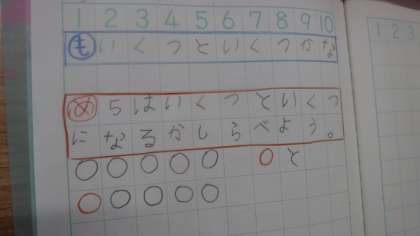 1 2 3 4 5 6 7 8 9 10
も いくつといくつかな
め 5はいくつといくつ
になるかしらべよう。
○○○○○ ○と
○○○○○
1 2 3